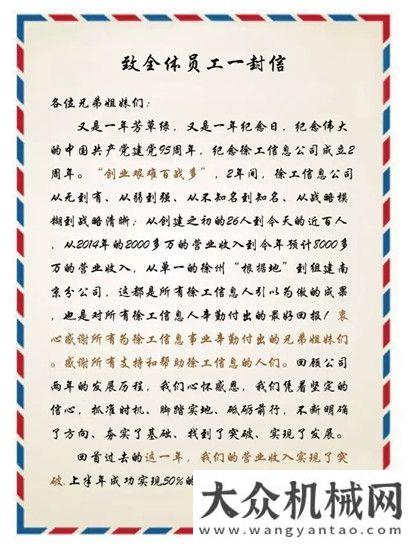 致全体员工一封信
各位兄弟姐妹们：
又是一年芳草绿，又是一年纪念日，纪念伟大
的中国共产党建党95周年，纪念徐工信息公司成立2
周年。“创业艰难百战多”，2年间，徐工信息公司
从无到有、从弱到强、从不知名到知名、从战略模
糊到战略清晰；从创建之初的26人到今天的近百人
，从2014年的2000多万的营业收入到今年预计8000多
万的营业收入，从单一的徐州“根据地”到组建南
京分公司，这都是所有徐工信息人引以为傲的成果
，也是对所有徐工信息人辛勤付出的最好回报！衷
心感谢所有为徐工信息事业辛勤付出的兄弟姐妹们
。感谢所有支持和帮助徐工信息的人们。回顾公司
两年的发展历程，我们心怀感恩，我们凭着坚定的
信心，抓准时机、脚踏实地、砥砺前行，不断明确
了方向、夯实了基础、找到了突破、实现了发展。
回首过去的这一年，我们的营业收入实现了突
破，上半年成功实现50%的
大众机械网
www.wangyantao.com